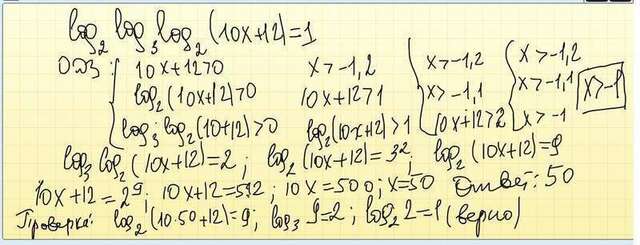 log₂ log₃ log₂ (10x+12)=1
ОДЗ: { 10x+12>0 x>-1,2 { x>-1,2 { x>-1,2
log₂(10x+12)>0 10x+12>1 x>-1,1 x>-1,1 x>-1
log₃ log₂(10+12)>0 log₂(10x+12)>1 10x+12>2 x>-1
log₃ log₂ (10x+12)=2; log₂(10x+12)=3²; log₂(10x+12)=9
10x+12=2⁹; 10x+12=512; 10x=500; x=50 Ответ: 50
Проверка: log₂(10·50+12)=9; log₃ 9=2; log₂ 2=1 (верно)